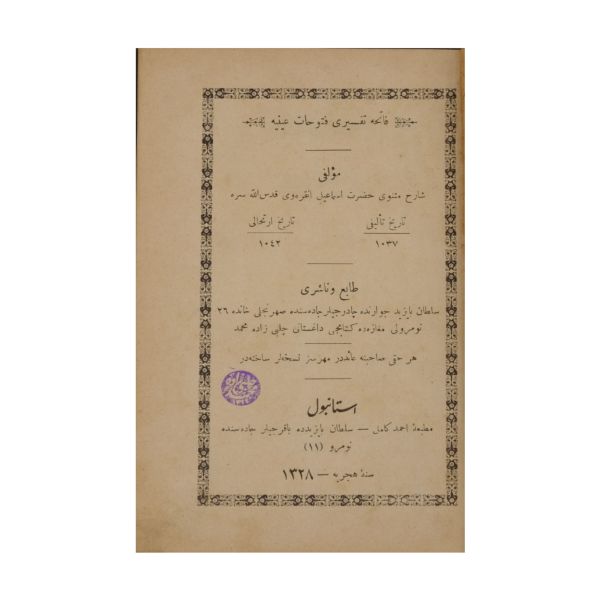 فاتحه تفسیری فتوحات عینیه
مؤلفی
شارح مثنوی حضرت اسماعیل انقره‌وی قدس الله سره
تاریخ تألیفی
۱۰۳۷
تاریخ ارتحالی
۱۰۴۲
طابع و ناشری
سلطان بایزید جوارنده چادرجیلر جاده‌سنده صهرنجلی خانده ۲۶
نومرولی مغازه‌ده کتابجی داغستانی چلبی زاده محمد
هر حقی صاحبنه عائددر مهرسز نسخه‌لر ساخته‌در
استانبول
مطبعهٔ احمد کامل — سلطان بایزیدده باقرجیلر جاده‌سنده
نومرو (۱۱)
سنهٔ هجریه — ۱۳۲۸